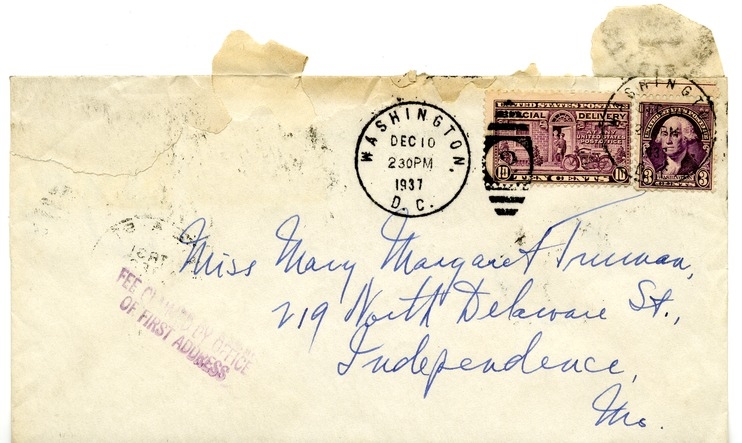 WASHINGTON,
DEC 10
230PM
1937
D. C.
UNITED STATES POSTAGE
SPECIAL DELIVERY
AT ANY
UNITED STATES
POST OFFICE
10 TEN CENTS 10
WASHINGTON
3 CENTS 3
Miss Mary Margaret Truman,
219 North Delaware St.,
Independence,
Mo.
FEE CLAIMED BY OFFICE
OF FIRST ADDRESS